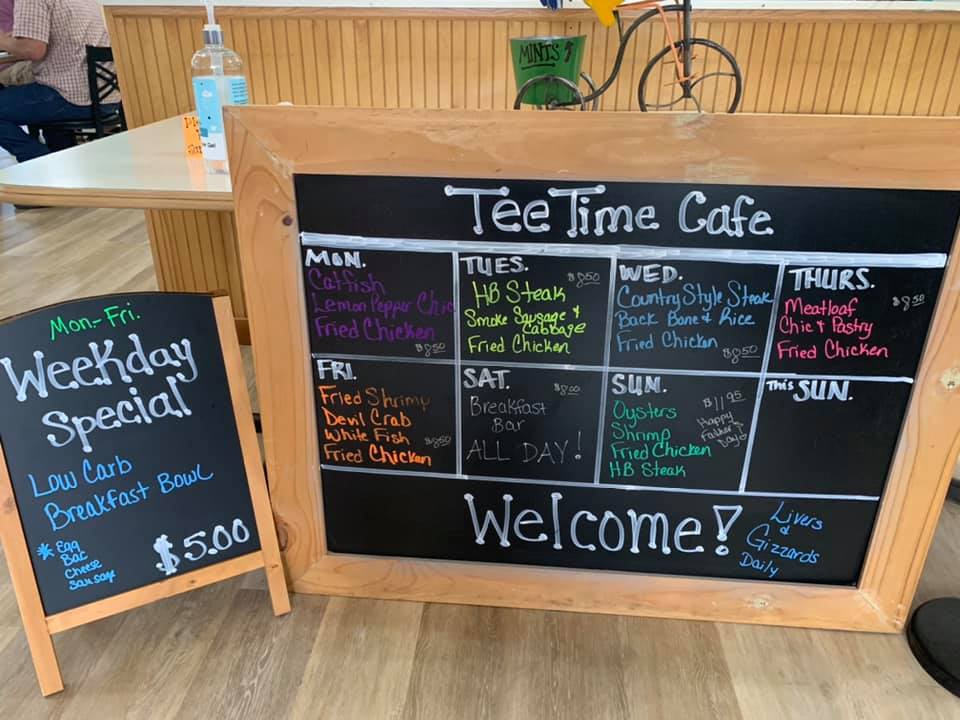 MINTS
Mon.-Fri.
Weekday
Special
Low Carb
Breakfast Bowl
* Egg
Bac
Cheese
Sausage
$5.00
Tee Time Cafe
MON.
Catfish
Lemon Pepper Chic
Fried Chicken
$8.50
TUES.
$8.50
HB Steak
Smoke Sausage &
Cabbage
Fried Chicken
WED.
Country Style Steak
Back Bone & Rice
Fried Chicken
$8.50
THURS.
Meatloaf
$8.50
Chic & Pastry
Fried Chicken
FRI.
Fried Shrimp
Devil Crab
White Fish
$8.50
Fried Chicken
SAT.
$8.00
Breakfast
Bar
ALL DAY!
SUN.
$11.95
Oysters
Shrimp
Fried Chicken
HB Steak
Happy
Father's
Day
This SUN.
Welcome!
Livers
&
Gizzards
Daily